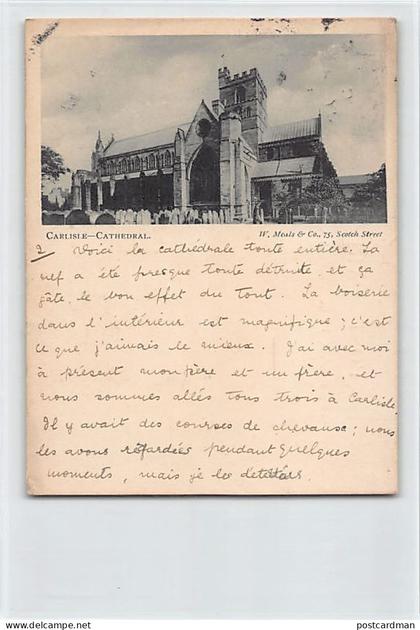 CARLISLE—CATHEDRAL.
W. Meals & Co., 75, Scotch Street
2 Voici la cathédrale toute entière. La
nef a été presque toute détruite et ça
gâte le bon effet du tout. La boiserie
dans l'intérieur est magnifique; c'est
ce que j'aimais le mieux. J'ai avec moi
à présent mon père et un frère, et
nous sommes allés tous trois à Carlisle.
Il y avait des courses de chevaux; nous
les avons regardées pendant quelques
moments, mais je les
postcardman